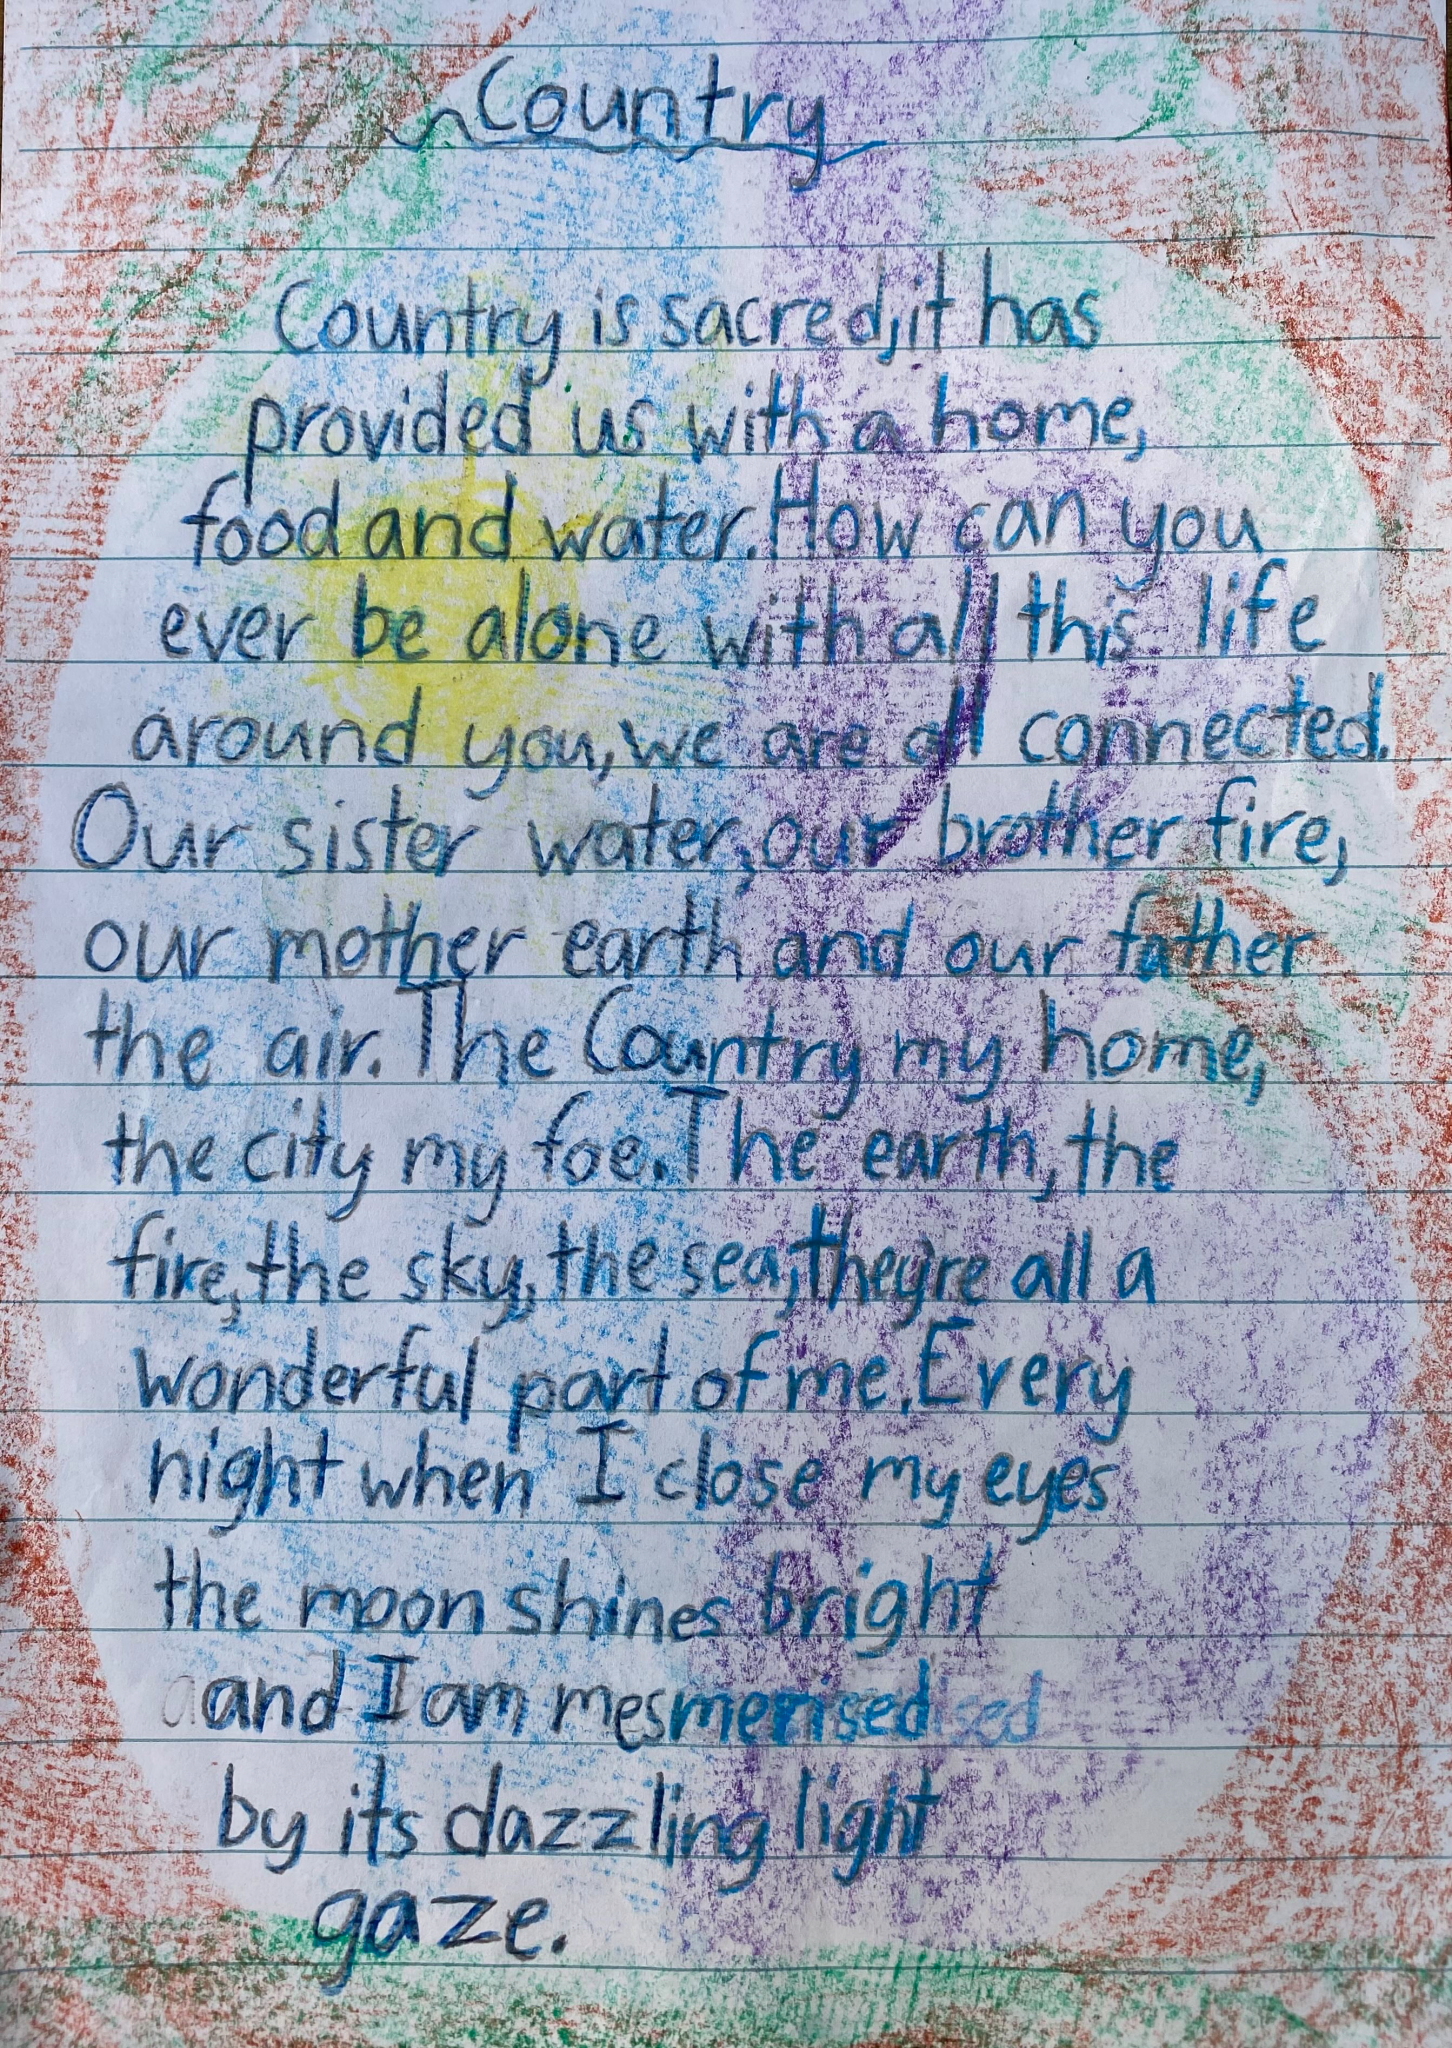 Country
Country is sacred, it has
provided us with a home,
food and water. How can you
ever be alone with all this life
around you, we are all connected.
Our sister water, our brother fire,
our mother earth and our father
the air. The Country my home,
the city my foe. The earth, the
fire, the sky, the sea, they're all a
wonderful part of me. Every
night when I close my eyes
the moon shines bright
and I am mesmerised
by its dazzling light
gaze.